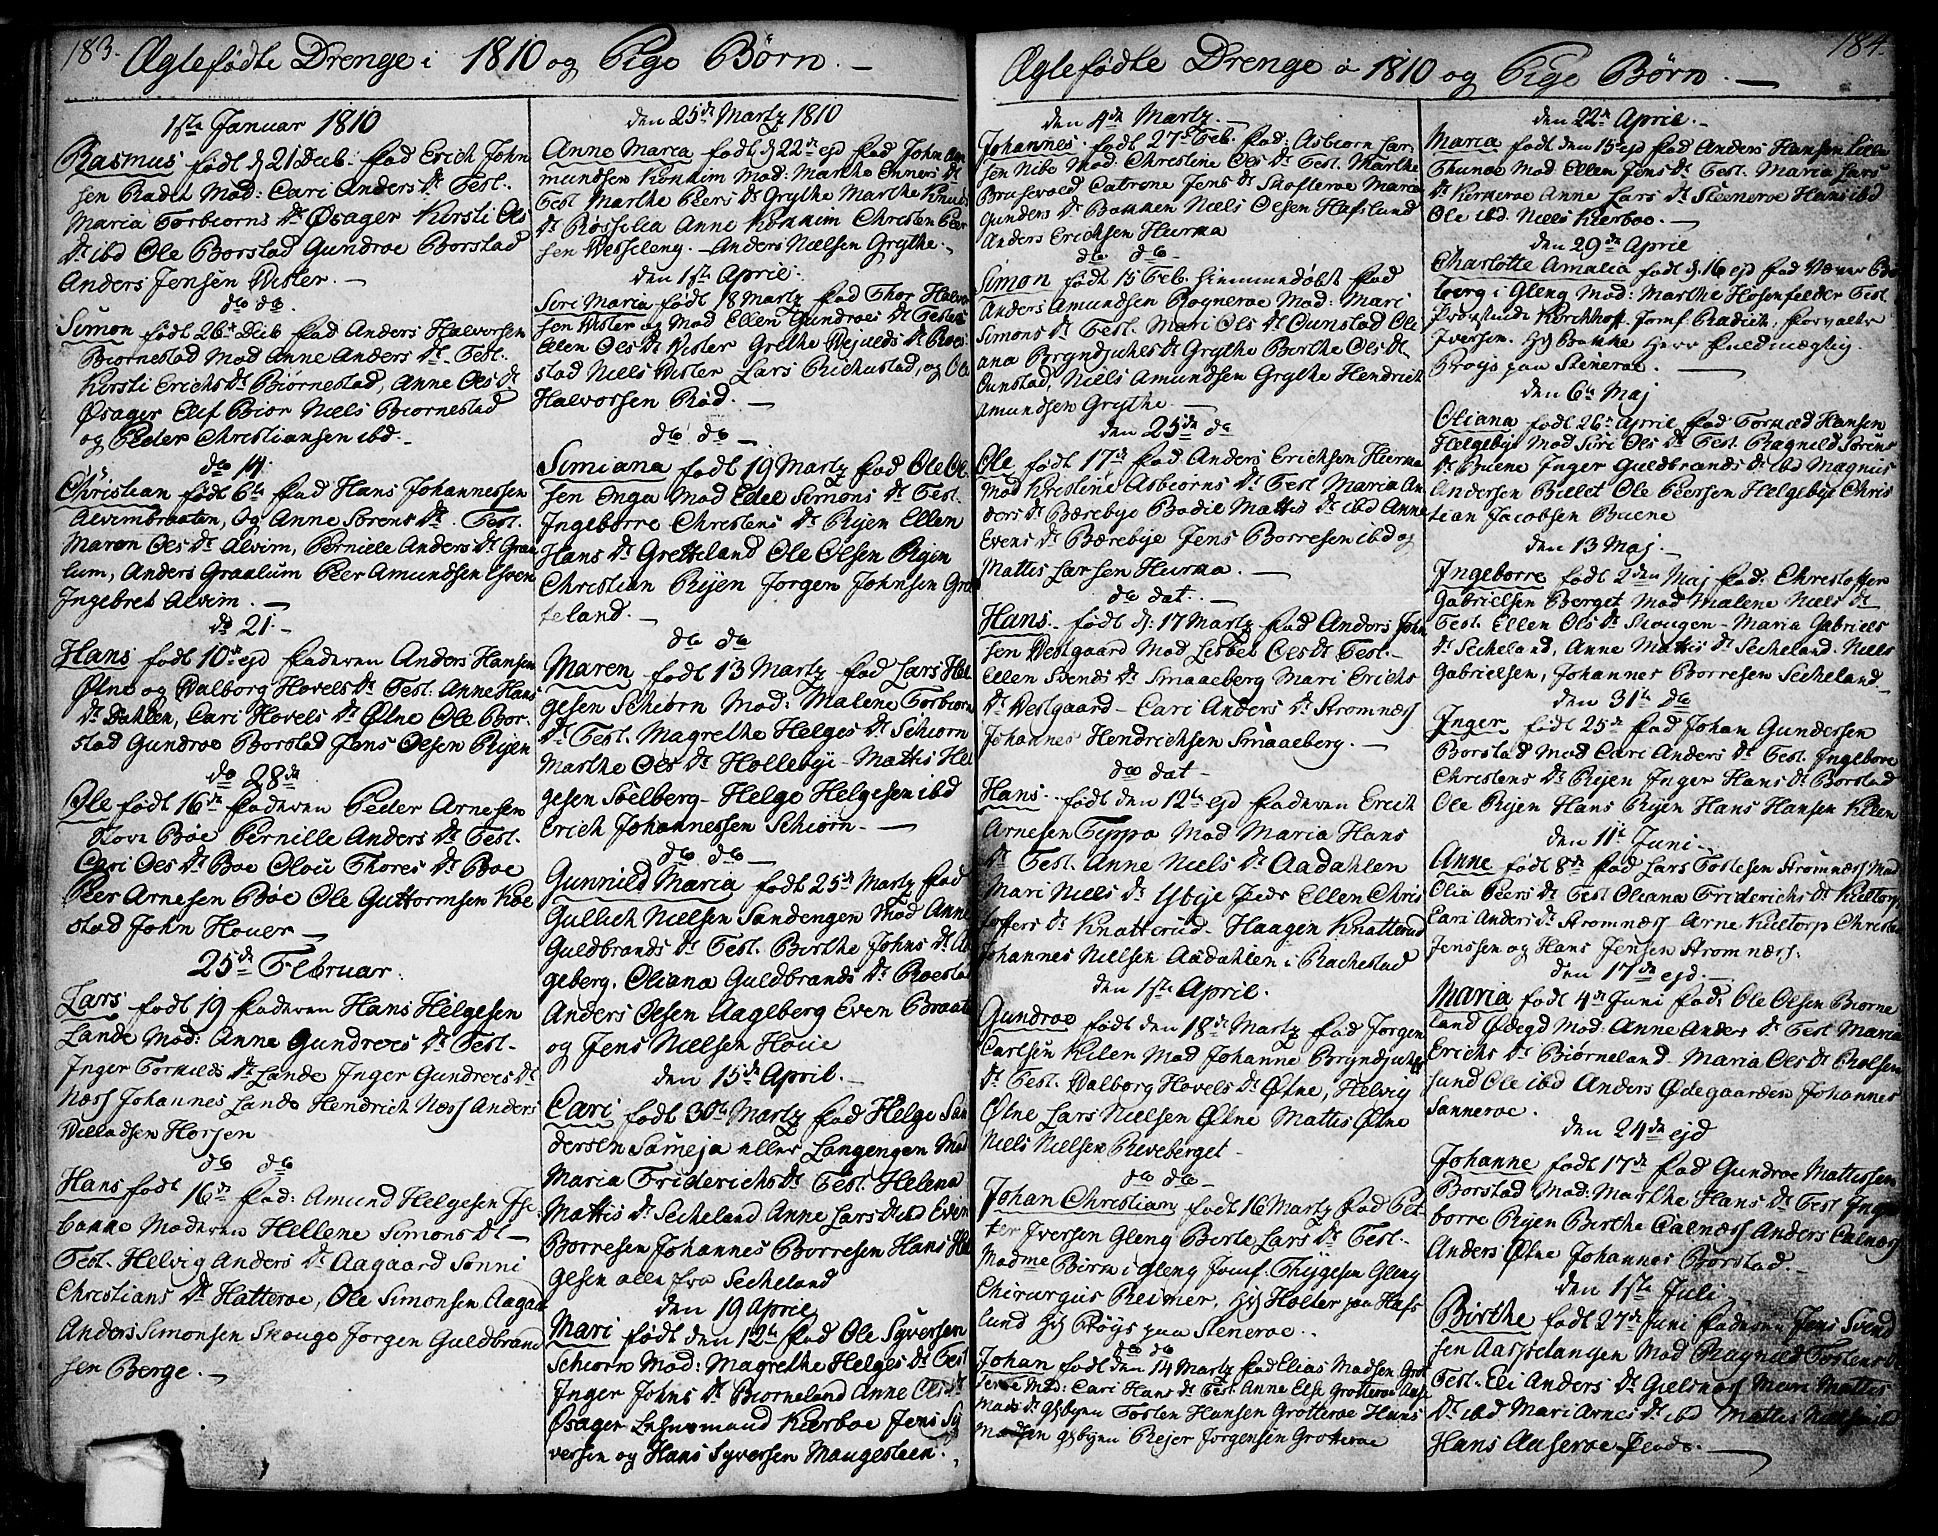 183. Ægtefødte Drenge i 1810 og Pige Børn. —
1ste Januar 1810
Rasmus født d 21 Decb: Fad Erich John
sen Radet Mod: Cari Anders Dr Test.
Maria Torbiorns Dr Øsager Kirsti Ols
Dr ibd Ole Borstad Gundroe Borstad
Anders Jensen Vister. —
do do.
Simon født 26 Decb Fad Anders Halvorsen
Biørnestad Mod Anne Anders Dr Test.
Kirsti Erichs Dr Biørnestad, Anne Ols Dr
Øsager Elef Bior Niels Biornestad
og Peder Christiansen ibd.
do 14.
Christian født 6te Fad Hans Johannessen
Alvimbraaten, og Anne Sørens Dr. Test.
Maren Ols Dr Alvim, Pernille Anders Dr Graa
lum, Anders Graalum Peer Amundsen Isven
Ingebret Alvim. —
do 21. —
Hans født 10de ejd Faderen Anders Hansen
Øtne og Valborg Hovels Dr Test: Anne Hans
Dr Dahlen, Cari Hovels Dr Øtne Ole Bor
stad Gundroe Borstad Jens Olsen Rijen
do 28de
Ole født 16de Faderen Peder Arnesen
Store Bøe Pernille Anders Dr Test.
Cari Ols Dr Boe Olou Thores Dr Boe
Peer Arnesen Bøe Ole Guttormsen Kae
stad John Houer —
25de Februar.
Lars født 19 Faderen Hans Helgesen
Lande Mod: Anne Gundrers Dr Test.
Inger Torkilds Dr Lande Inger Gundrers Dr
Næss Johannes Lande Hendrich Næss Anders
Villadsen Horsen
do do
Hans født 16de Fad: Amund Helgesen Ise
bakke Moderen Hellene Simons Dr —
Test. Helvig Anders Dr Aagaard Sonni
Christians Dr Hatteroe, Ole Simonsen Aagaa
Anders Simonsen Skouge Jorgen Guldbrand
sen Berge. —
den 25de Martz 1810
Anne Maria født d 22de ejd Fad John Am
mundsen Konkim Mod: Marthe Enners Dr
Test Marthe Peers Dr Grythe Marthe Knuds
Dr Røsselia Anne Konkim Christen Peer
sen Vesseleng. — Anders Nielsen Grythe.
den 1ste April.
Siri Maria født 18 Martz Fad Thor Halvor
sen Vister og Mod Ellen Gundroes Dr Testes
Ellen Ols Dr Vister Grethe Rejulds Dr Roe
stad Niels Vister Lars Richustad, og Ole
Halvorsen Rød. —
do do —
Simiana født 19 Martz Fad Ole Ol
sen Enga Mod Edel Simons Dr Test.
Ingeborre Christens Dr Rijen Ellen
Hans Dr Gretteland Ole Olsen Rigen
Christian Rijen Jorgen Johnsen Gre
teland. —
do do
Maren født 13 Martz Fad Lars Hel
gesen Schiorn Mod: Malene Torbiorn
Dr Test. Magrethe Helges Dr Schiorn
Marthe Ols Dr Hollebye Mattis Hel
gesen Solberg — Helge Helgesen ibd
Erich Johannessen Schiorn. —
do do —
Gunnild Maria født 25de Martz Fad
Gullich Nielsen Sandengen Mod Anne
Guldbrands Dr Test. Birthe Johns Dr A
geberg. Oliana Guldbrands Dr Roestad
Anders Olsen Aageberg Even Braate
og Jens Nielsen Houe
den 15de April. —
Cari født 30te Martz Fad Helge San
dersen Sameja eller Langengen Mod
Maria Friderichs Dr Test. Helena
Mattis Dr Secheland Anne Lars Dr ibd Even
Borresen Johannes Borresen Hans Hel
gesen alle fra Secheland
den 19 April
Mari født den 12te Fad Ole Syversen
Schiorn Mod: Magrethe Helges Dr Test
Inger Johns Dr Biorneland Anne Ols Dr
Øsager Lensmand Kierboe Jens Sy
versen og Hans Syversen Maugesteen.
Ægtefødte Drenge i 1810 og Pige Børn. — 184
den 4de Martz. —
Johannes. født 27de Feb. Fad: Asbiorn Lar
sen Nibe Mod: Christine Ols Dr Test. Marthe
Brusevold Catrene Jens Dr Skofteroe Maria
Gunders Dr Bakken Niels Olsen Hafslund
Anders Erichsen Hurma
do do.
Simon født 15 Feb. hiemmedøbt Fad
Anders Amundsen Rogneroe Mod: Mari
Simons Dr Test. Mari Ols Dr Cunstad Oli
ana Bryndjulvs Dr Grythe Birthe Ols Dr
Cunstad, Niels Amundsen Grythe Hendrich
Amundsen Grythe —
den 25de do
Ole født 17de Fad: Anders Erichsen Huerma
Mod Kirstine Asbiorns Dr Test Maria An
ders Dr Bærebye Bodil Mattis Dr ibd Anne
Evens Dr Bærebye Jens Borresen ibd og
Mattis Larsen Hurma. —
do dat. —
Hans. født d: 17 Martz Fad Anders John
sen Vestgaard Mod Lisbet Ols Dr Test.
Ellen Svends Dr Smaaeberg Mari Erichs
Dr Vestgaard — Cari Anders Dr Stromness
Johannes Hendrichsen Smaaeberg. —
do dat —
Hans. født den 12te ejd Faderen Erich
Arnesen Teppa Mod Maria Hans
Dr Test. Anne Niels Dr Aadahlen
Mari Niels Dr Ysbye Peds Ellen Chris
toffers Dr Knatterud — Haagen Knatterud
Johannes Nielsen Aadahlen i Rachestad
den 1ste April.
Gundroe født den 18de Martz Fad Jorgen
Carlsen Kilen Mod Johanne Bryndjulvs
Dr Test. Valborg Hovels Dr Øtne, Helvig
Øtne Lars Nielsen Øtne Mattis Øtne
Niels Nielsen Reveberget —
do do —
Johan Christian født 16 Martz Fad Pet
ter Iversen Gleng Berte Lars Dr Test.
Madme Biørn i Gleng Jomf. Thygesen Gleng
Chirurgus Reimer. Hr Holter paa Hafs
lund Hr Røys paa Steneroe.
do do
Johan født den 14 Martz Fad Elias Madsen Grot
teroe Mod: Cari Hans Dr Test. Anne Else Grotteroe Anne
Mads Dr Gisbyen Tosten Hansen Grotteroe Hans
Madsen Gisbyen Rejer Jorgensen Grotteroe
den 22de April. —
Maria født den 15de ejd Fad Anders Hansen Lille
Thune Mod Ellen Jens Dr Test. Maria Lars
Dr Kirkeroe Anne Lars Dr Steeneroe Hans ibd
Ole ibd. Niels Kierboe. —
den 29de April
Charlotte Amalia født d. 16 ejd Fad Væver Bro
berg i Gleng Mod: Marthe Hosenfelder Test.
Provstinde Kirchhoff. Jomf. Radich, Forvalter
Iversen. Hr Bakke Herr Fuldmægtig
Røys paa Stenerae. —
den 6te Maj
Oliana født 26de April Fad Tormod Hansen
Helgebye Mod Siri Ols Dr Test. Ragnild Sørens
Dr Buene Inger Guldbrands Dr ibd Magnus
Andersen Billet Ole Peersen Helgebye Chris
tian Jacobsen Buene
den 13 Maj. —
Ingeborre født 2den Maj Fad: Christoffer
Gabrielsen Berget Mod Malene Niels Dr
Test. Ellen Ols Dr Skougen — Maria Gabriels
Dr Secheland, Anne Mattis Dr Secheland. Niels
Gabrielsen, Johannes Borresen Secheland
den 31te do
Inger født 25de Fad Johan Gundersen
Borstad Mod Cari Anders Dr Test Ingebore
Christens Dr Rijen Inger Hans Dr Borstad
Ole Rijen Hans Rijen Hans Hansen Killen
den 11te Juni —
Anne født 8de Fad Lars Tostesen Stromness Mod
Olia Peers Dr Test Oliana Friderichs Dr Kultorp
Cari Anders Dr Stromness — Arne Kultorp Christe
Jenssen og Hans Jensen Stromness.
den 17de ejd. —
Maria født 4de Juni Fad: Ole Olsen Biorne
land Ødegd Mod: Anne Anders Dr Test Maria
Erichs Dr Biørneland — Maria Ols Dr Rolfsen
sund Ole ibd Anders Ødegaarden Johannes
Sanneroe.
den 24de ejd
Johanne født 17de Fad Gundroe Mattissen
Borstad Mod: Marthe Hans Dr Test Inge
borre Rijen Birthe Calnæss Anders Calnæss
Anders Øtne Johannes Borstad. —
den 1ste Juli.
Birthe født 27de Juni Faderen Jens Svend
sen Aarsselangen Mod Ragnild Tostens Dr
Test. Eli Anders Dr Gielsnæss Mari Mattis
Dr ibd Mari Arnes Dr ibd Mattis Nielsen ibd
Hans Auseroe Peds. —